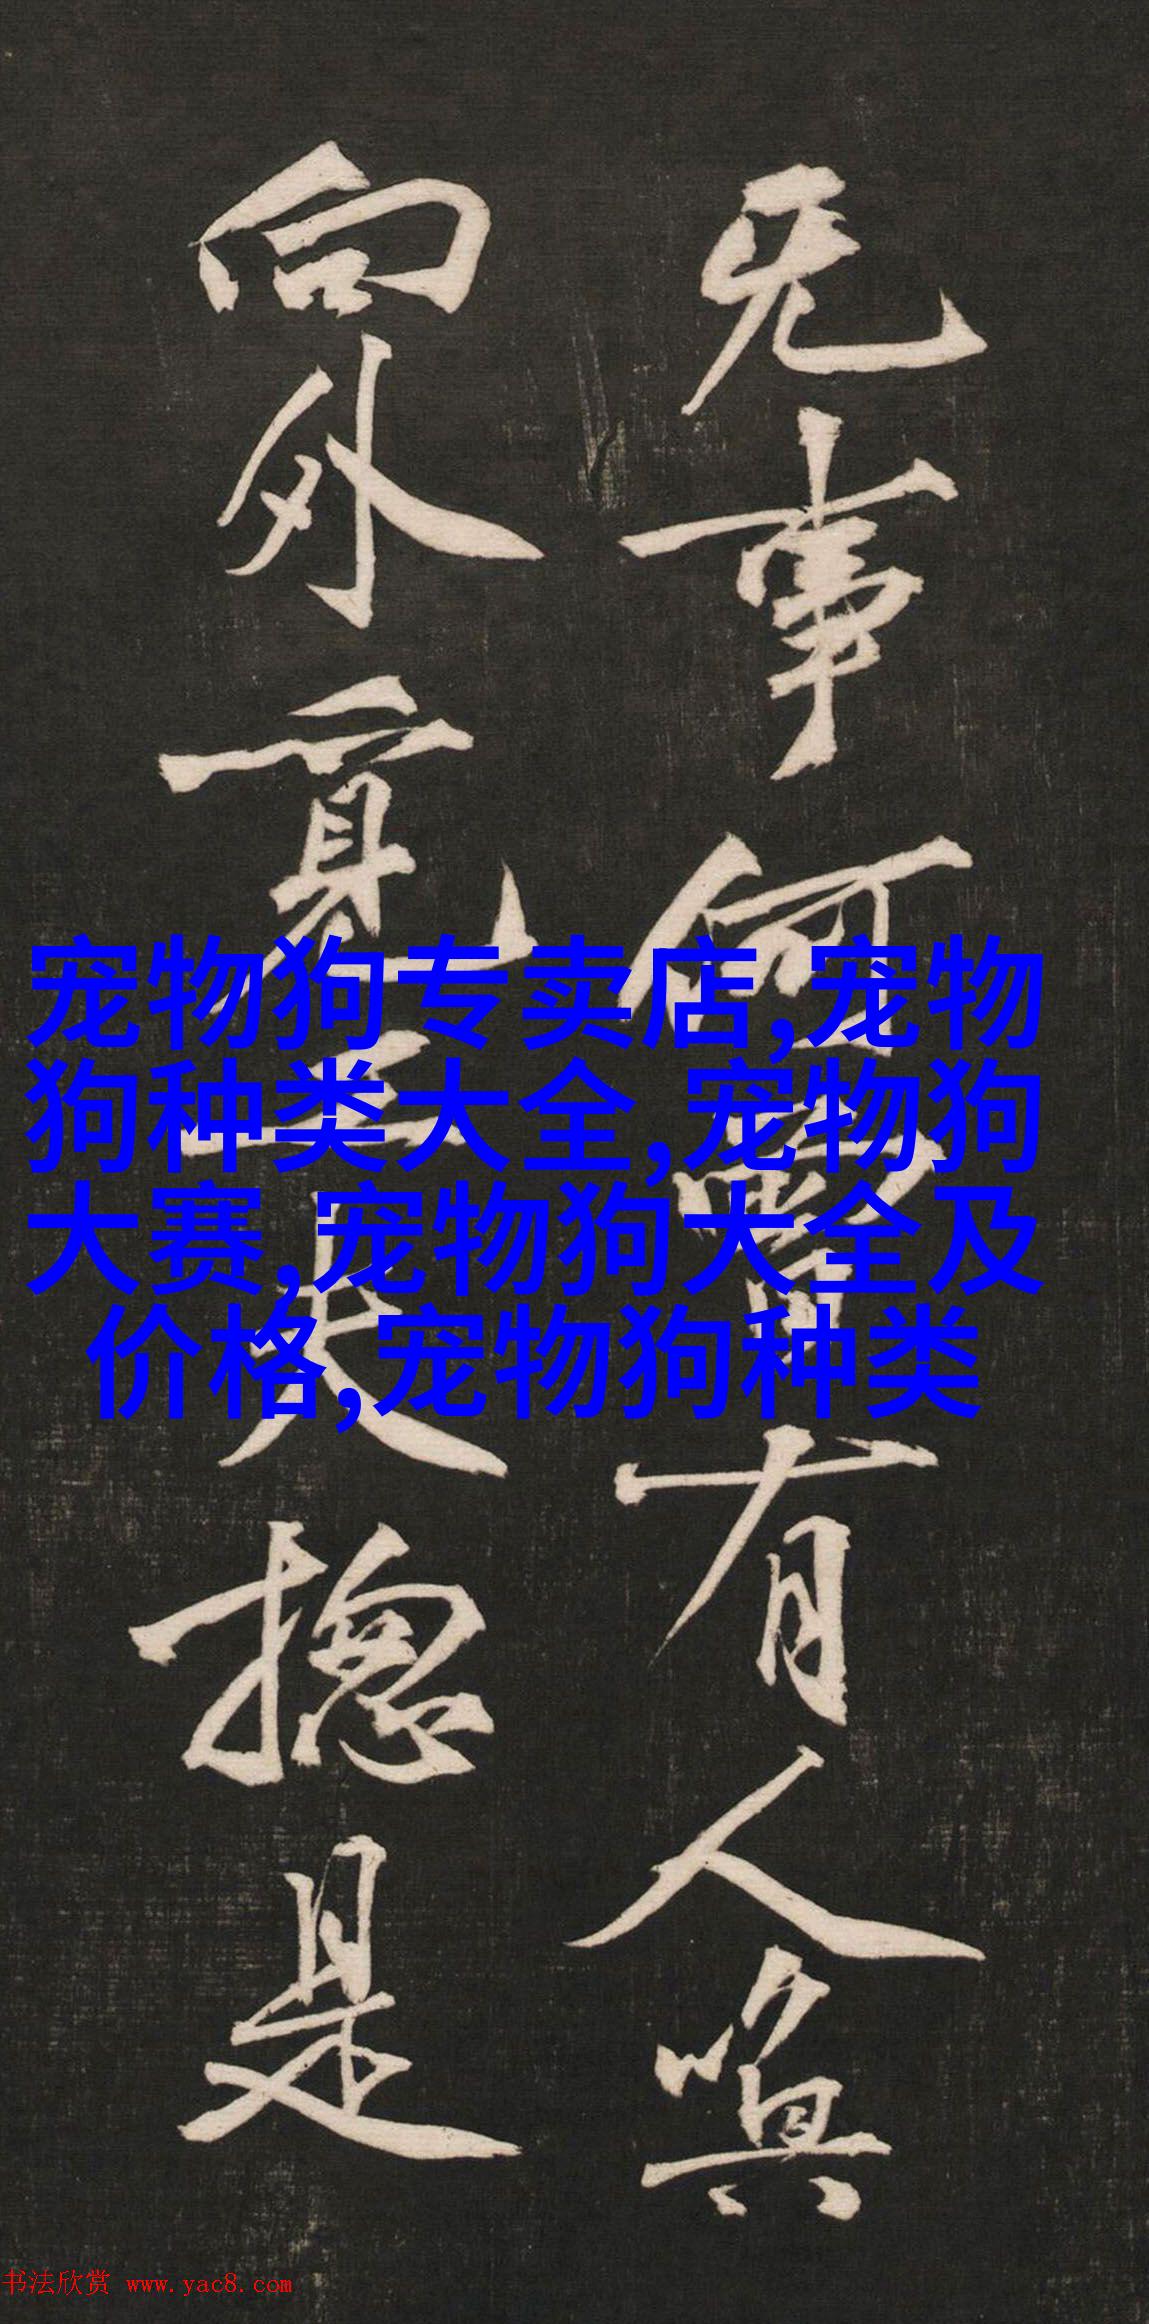 无事何有人
向外覓工夫揔是
宠物狗专卖店,宠物
狗种类大全,宠物狗
大赛,宠物狗大全及
价格,宠物狗种类
书法欣赏 www.yac8.com